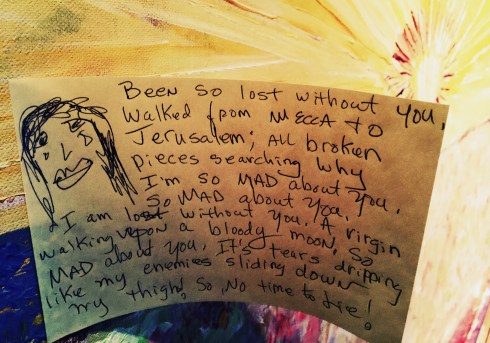 BEEN SO lost without you.
Walked from MECCA to
Jerusalem; All broken
pieces searching why
I'm so MAD about you.
So MAD about you.
I am lost without you. A virgin
walking upon a bloody moon, So
MAD about you. It's tears dripping
like my enemies sliding down
my thigh, So, No time to die!